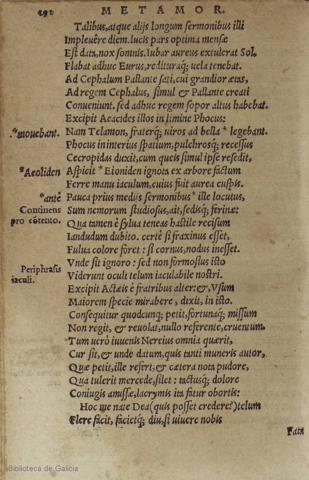 292 METAMOR.
Talibus, atque alijs longum sermonibus illi
Impleuêre diem. lucis pars optima mensæ
Est data, nox somnis. Iubar aureus extulerat Sol.
Flabat adhuc Eurus, redituraq; uela tenebat.
Ad Cephalum Pallante sati, cui grandior ætas,
Ad regem Cephalus, simul & Pallante creati
Conueniunt. sed adhuc regem sopor altus habebat.
Excipit Aeacides illos in limine Phocus:
*mouebant. Nam Telamon, fraterq; uiros ad bella * legebant.
Phocus in interius spatium, pulchrosq; recessus
Cecropidas duxit, cum queis simul ipse resedit,
Aeoliden Aspicit * Eioniden ignota ex arbore factum
Ferre manu iaculum, cuius fuit aurea cuspis.
*antè Pauca prius medijs sermonibus * ille locutus,
Continens Sum nemorum studiosus, ait, sedisq; ferinæ:
pro cõtento. Qua tamen è sylua teneas hastile recisum
Iandudum dubito. certè si fraxinus esset,
Fulua colore foret: si cornus, nodus inesset.
Periphrasis Vnde sit ignoro: sed non formosius isto
iaculi. Viderunt oculi telum iaculabile nostri.
Excipit Actæis è fratribus alter: &, Vsum
Maiorem specie mirabere, dixit, in isto.
Consequitur quodcunq; petit, fortunaq; missum
Non regit, & reuolat, nullo referente, cruentum.
Tum uerò iuuenis Nereius omnia quærit,
Cur sit, & unde datum, quis tanti muneris autor,
Quæ petit, ille refert, & cætera nota pudore,
Qua tulerit mercede, silet: tactusq; dolore
Coniugis amissæ, lacrymis ita fatur obortis:
Hoc me nate Dea (quis posset credere?) telum
Flere facit, facietq; diu, si uiuere nobis
Fata
Biblioteca de Galicia